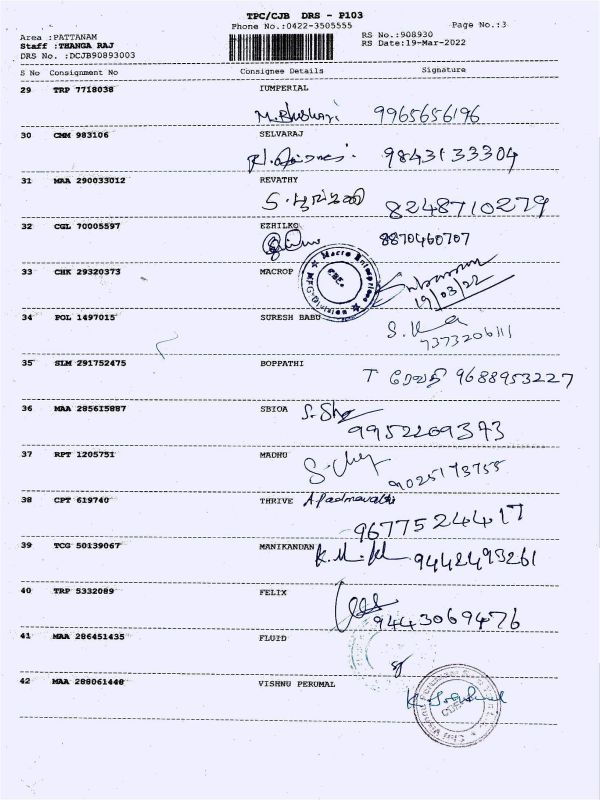 TPC/CJB DRS - P103
Phone No.:0422-3505555
Page No.:3
Area :PATTANAM
RS No.:908930
Staff :THANGA RAJ
RS Date:19-Mar-2022
DRS No. :DCJB90893003
S No Consignment No Consignee Details Signature
29 TRP 7718038 IUMPERIAL
9965656196
30 CMM 983106 SELVARAJ
9843133304
31 MAA 290033012 REVATHY
8248710279
32 CGL 70005597 EZHILKO
8870460707
33 CHK 29320373 MACROP
Macro Enterprises
MFG-Division
CBE.
19/03/22
34 POL 1497015 SURESH BABU
7373206111
35 SLM 291752475 BOPPATHI
T ரேவதி 9688953227
36 MAA 285615887 SBIOA
9952209373
37 RPT 1205751 MADHU
9025173755
38 CPT 619740 THRIVE A Padmavathi
9677524417
39 TCG 50139067 MANIKANDAN
9442493261
40 TRP 5332089 FELIX
9443069476
41 MAA 286451435 FLUID
42 MAA 288061448 VISHNU PERUMAL